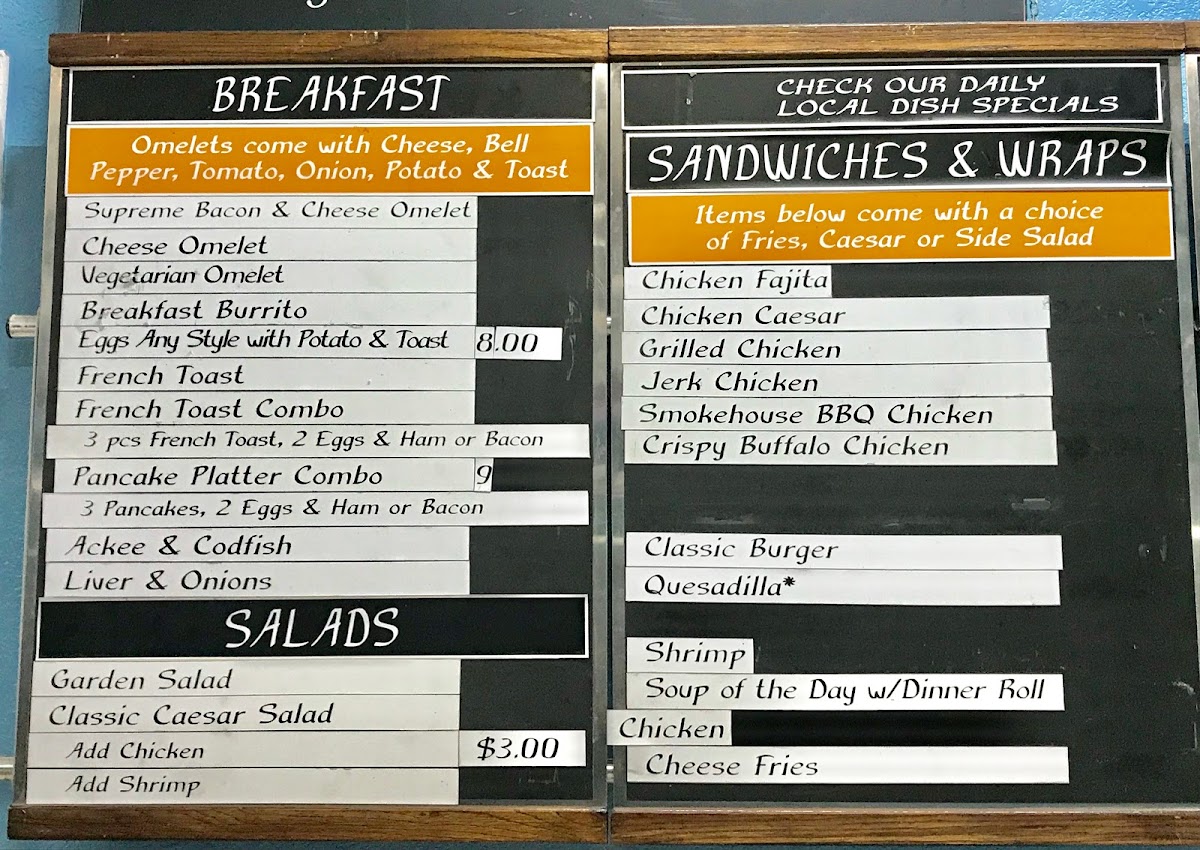 BREAKFAST
Omelets come with Cheese, Bell
Pepper, Tomato, Onion, Potato & Toast
Supreme Bacon & Cheese Omelet
Cheese Omelet
Vegetarian Omelet
Breakfast Burrito
Eggs Any Style with Potato & Toast 8.00
French Toast
French Toast Combo
3 pcs French Toast, 2 Eggs & Ham or Bacon
Pancake Platter Combo 9
3 Pancakes, 2 Eggs & Ham or Bacon
Ackee & Codfish
Liver & Onions
SALADS
Garden Salad
Classic Caesar Salad
Add Chicken $3.00
Add Shrimp
CHECK OUR DAILY
LOCAL DISH SPECIALS
SANDWICHES & WRAPS
Items below come with a choice
of Fries, Caesar or Side Salad
Chicken Fajita
Chicken Caesar
Grilled Chicken
Jerk Chicken
Smokehouse BBQ Chicken
Crispy Buffalo Chicken
Classic Burger
Quesadilla*
Shrimp
Soup of the Day w/Dinner Roll
Chicken
Cheese Fries